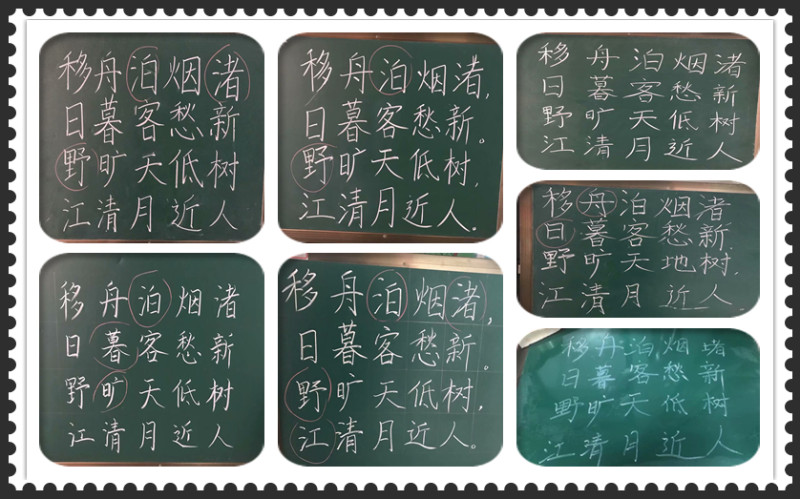 移舟泊烟渚
日暮客愁新
野旷天低树
江清月近人
移舟泊烟渚,
日暮客愁新。
野旷天低树,
江清月近人.
移舟泊烟渚
日暮客愁新
野旷天低树
江清月近人
移舟泊烟渚
日暮客愁新.
野旷天地树.
江清月近人.
移舟泊烟渚
日暮客愁新
野旷天低树
江清月近人
移舟泊烟渚,
日暮客愁新。
野旷天低树,
江清月近人。
移舟泊烟堵
日暮客愁新
野旷天低树
江清月近人